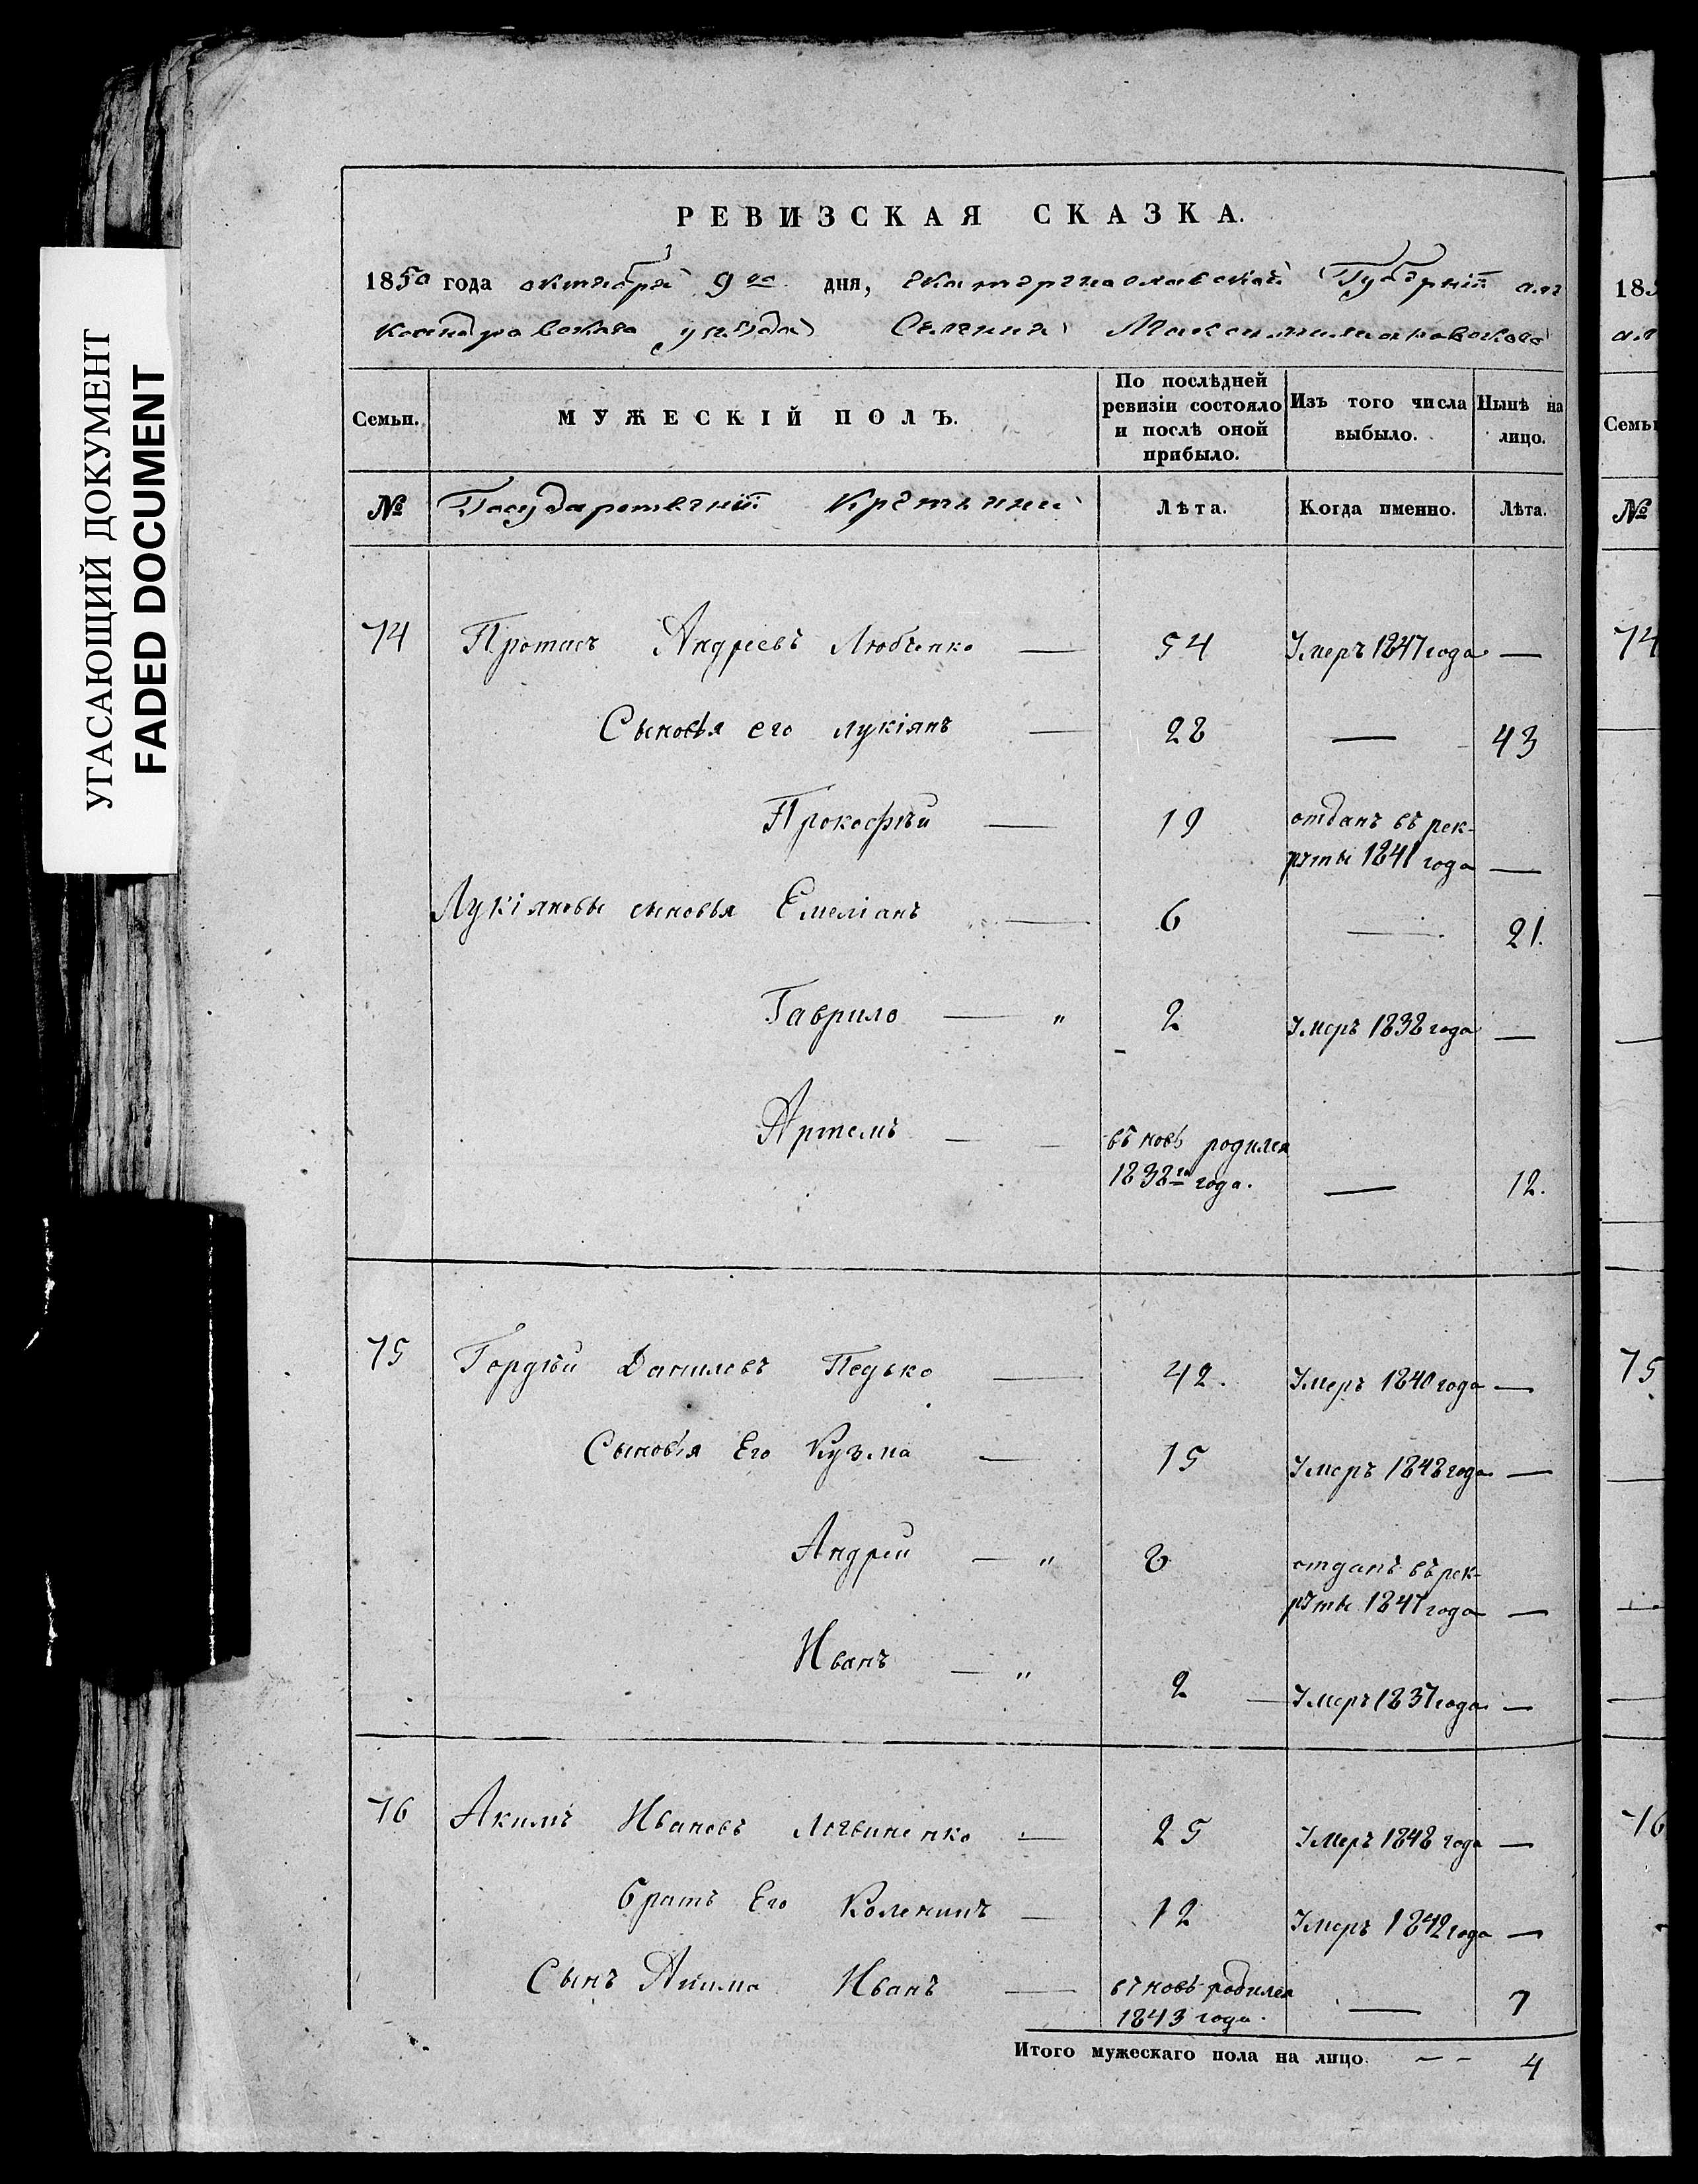 УГАСАЮЩИЙ ДОКУМЕНТ
FADED DOCUMENT
РЕВИЗСКАЯ СКАЗКА.
1850 года октября 9го дня, Екатеринославской Губерніи Алек
сандровскаго уѣзда Селенія Максимильяновскаго
Семьи. МУЖЕСКІЙ ПОЛЪ. По послѣдней ревизіи состояло и послѣ оной прибыло. Изъ того числа выбыло. Нынѣ на лицо.
№ Государственныи Крестьяни Лѣта. Когда именно. Лѣта.
74 Протасъ Андреевъ Любченко — 54 Умеръ 1847 года —
Сыновья его Лукіянъ — 28 — 43
Прокофѣй — 19 отданъ въ рек-
руты 1841 года —
Лукіяновы сыновья Емеліанъ — 6 — 21.
Гаврило — " 2 Умеръ 1838 года —
Артемъ — — въ новь родился
1838го года. — 12.
75 Гордѣй Данилевъ Педько — 42. Умеръ 1840 года —
Сыновья Его Кузма — 15 Умеръ 1848 года —
Андрей — " 8 отданъ въ рек-
руты 1847 года —
Иванъ — " 2 — Умеръ 1837 года —
76 Акимъ Ивановъ Логвиненко — 25 Умеръ 1848 года —
братъ Его — 12 Умеръ 1842 года —
Сынъ Акима Иванъ — въ новь родился
1843 года. — 7
Итого мужескаго пола на лицо. — — 4
185
ал
Семьи
№
74
75
76